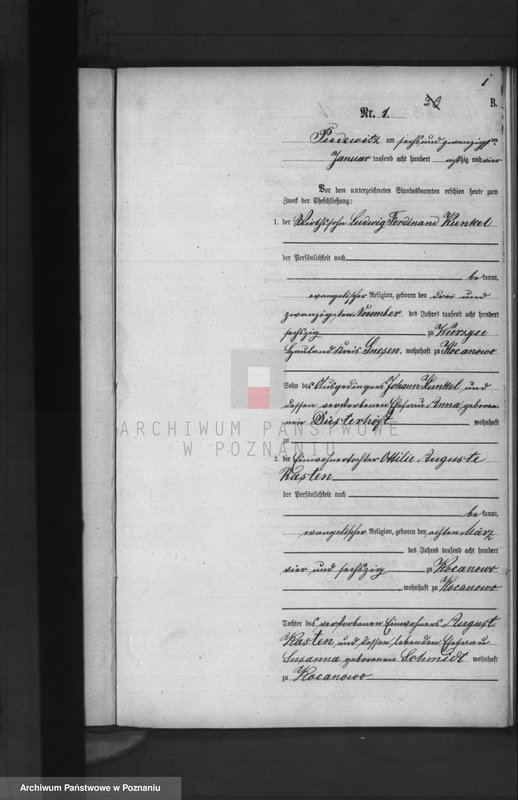 1
20
B.
Nr. 1.
Pudewitz am sechs und zwanzigsten
Januar tausend acht hundert achtzig und vier
Vor dem unterzeichneten Standesbeamten erschien heute zum
Zweck der Eheschließung:
1. der Wirthssohn Ludwig Ferdinand Kunkel
der Persönlichkeit nach
be kannt,
evangelischer Religion, geboren den drei und
zwanzigsten November des Jahres tausend acht hundert
sechszig zu Kierzyce
Hauland Kreis Gnesen, wohnhaft zu Kocanowo
Sohn des Ausgedingers Johann Kunkel und
dessen verstorbenen Ehefrau Anna, gebore
nen Düsterhöft wohnhaft
zu
2. die Einwohnertochter Ottilie Auguste
Kasten
der Persönlichkeit nach
be kannt,
evangelischer Religion, geboren den achten März
des Jahres tausend acht hundert
vier und sechszig zu Kocanowo
wohnhaft zu Kocanowo
Tochter des verstorbenen Einwohners August
Kasten und dessen lebenden Ehefrau
Susanna geborenen Schmidt wohnhaft
zu Kocanowo
ARCHIWUM PAŃSTWOWE
W POZNANIU
Archiwum Państwowe w Poznaniu